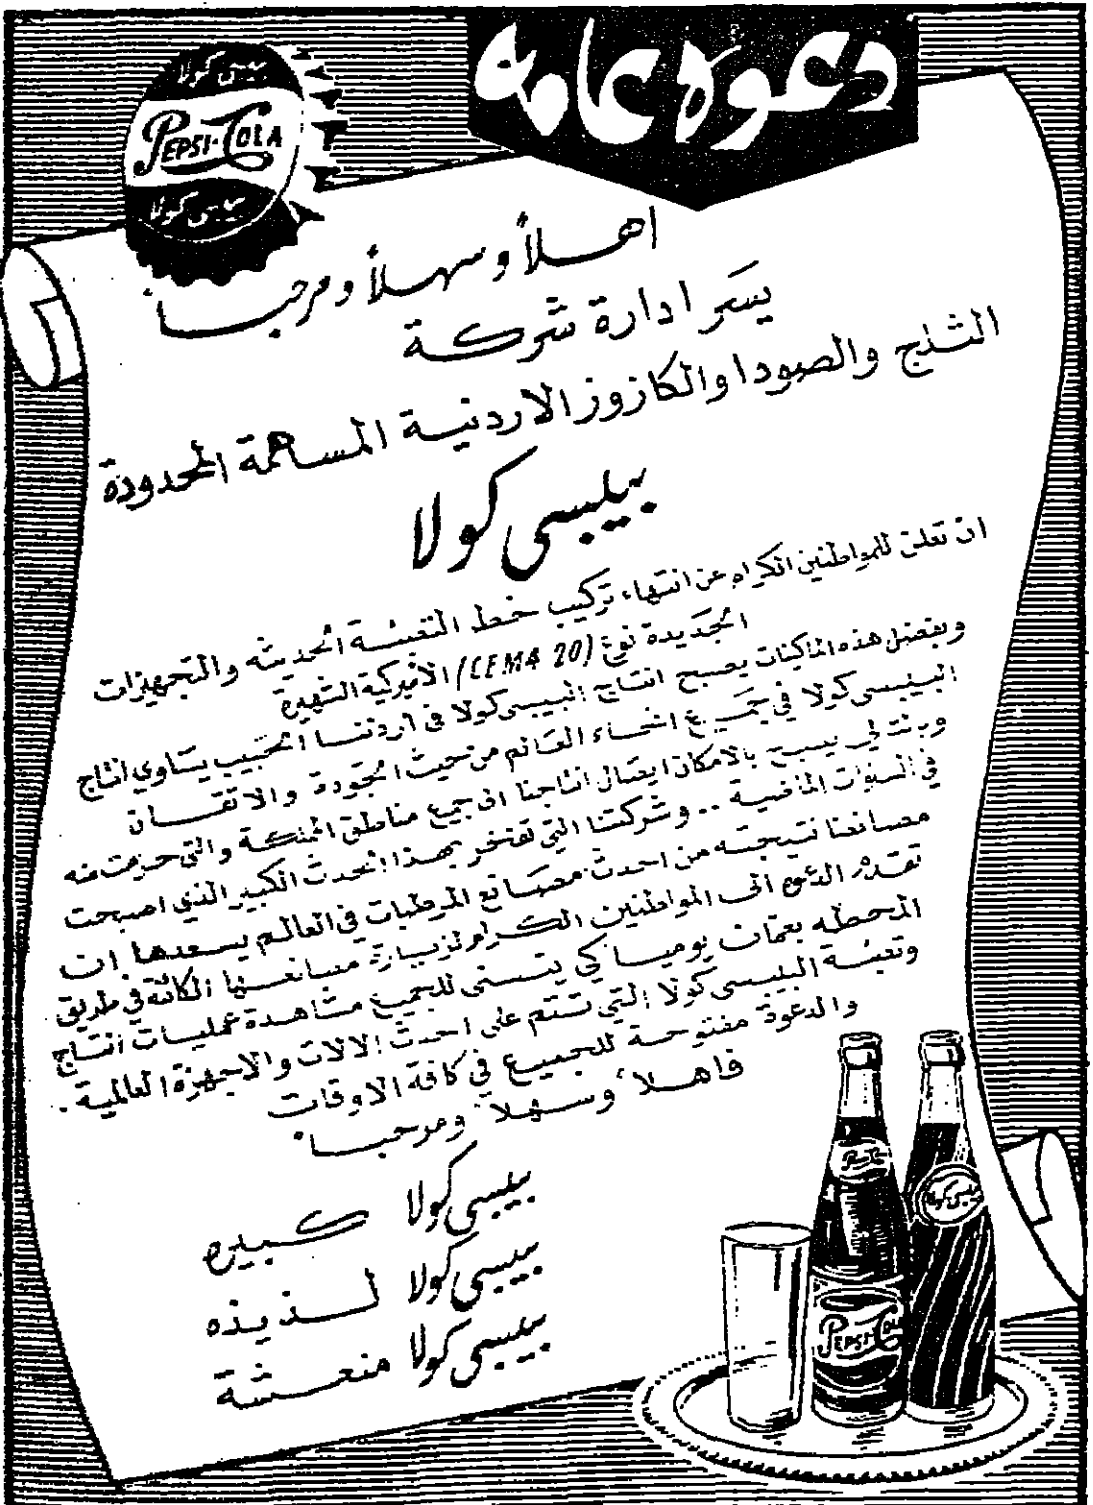 دعوة عامة
بيبسي كولا
PEPSI-COLA
بيبسي كولا
اهلاً وسهلاً ومرحبا
يسر ادارة شركة
الثلج والصودا والكازوز الاردنية المساهمة المحدودة
بيبسي كولا
ان تعلن للمواطنين الكرام عن انتهاء تركيب خط التعبئة الحديثه والتجهيزات
الجديدة نوع (CEMA 20) الاميركية الشهيرة
وبفضل هذه الماكينات يصبح انتاج البيبسي كولا في اردننا الحبيب يساوي انتاج
البيبسي كولا في جميع انحاء العالم من حيث الجودة والاتقان
وبالتالي يصبح بالامكان ايصال انتاجنا الى جميع مناطق المملكة والتي حرمت منه
في السنوات الماضية .. وشركتنا التي تفتخر بهذا الحدث الكبير الذي اصبحت
مصانعنا نتيجته من احدث مصانع المرطبات في العالم يسعدها ان
تقدم الدعوه الى المواطنين الكرام لزيارة مصانعها الكائنة في طريق
المحطه بعمان يوميا كي يتسنى للجميع مشاهدة عمليات انتاج
وتعبئة البيبسي كولا التي تتم على احدث الالات والاجهزة العالمية .
والدعوة مفتوحة للجميع في كافة الاوقات
فاهلا وسهلا ومرحبا
بيبسي كولا كبيره
بيبسي كولا لذيذه
بيبسي كولا منعشة
PEPSI-COLA
بيبسي كولا
PEPSI-COLA